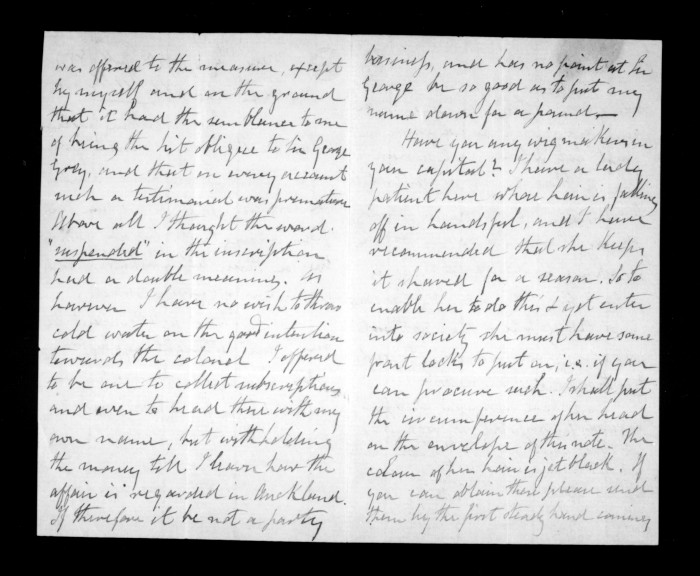 was offered to the measure, except
by myself and on the ground
that it had the semblance to me
of being the hit oblique to Sir George
Grey, and that on every account
such a testimonial was premature
Above all I thought the word
"suspended" in the inscription
had a double meaning. As
however I have no wish to throw
cold water on the good intention
towards the colonel I offered
to be one to collect subscriptions
and even to head them with my
own name, but withholding
the money till I learn how the
affair is regarded in Auckland.
If therefore it be not a party
business, and has no point at Sir
George be so good as to put my
name down for a pound.—
Have you any wigmakers in
your capital? I have a lady
patient here whose hair is falling
off in handsful, and I have
recommended that she keeps
it shaved for a season. So to
enable her to do this & yet enter
into society she must have some
front locks to put on, i.e. if you
can procure such. I shall put
the circumference of her head
on the envelope of this note. The
colour of her hair is jet black. If
you can obtain them please send
them by the first steady hand coming